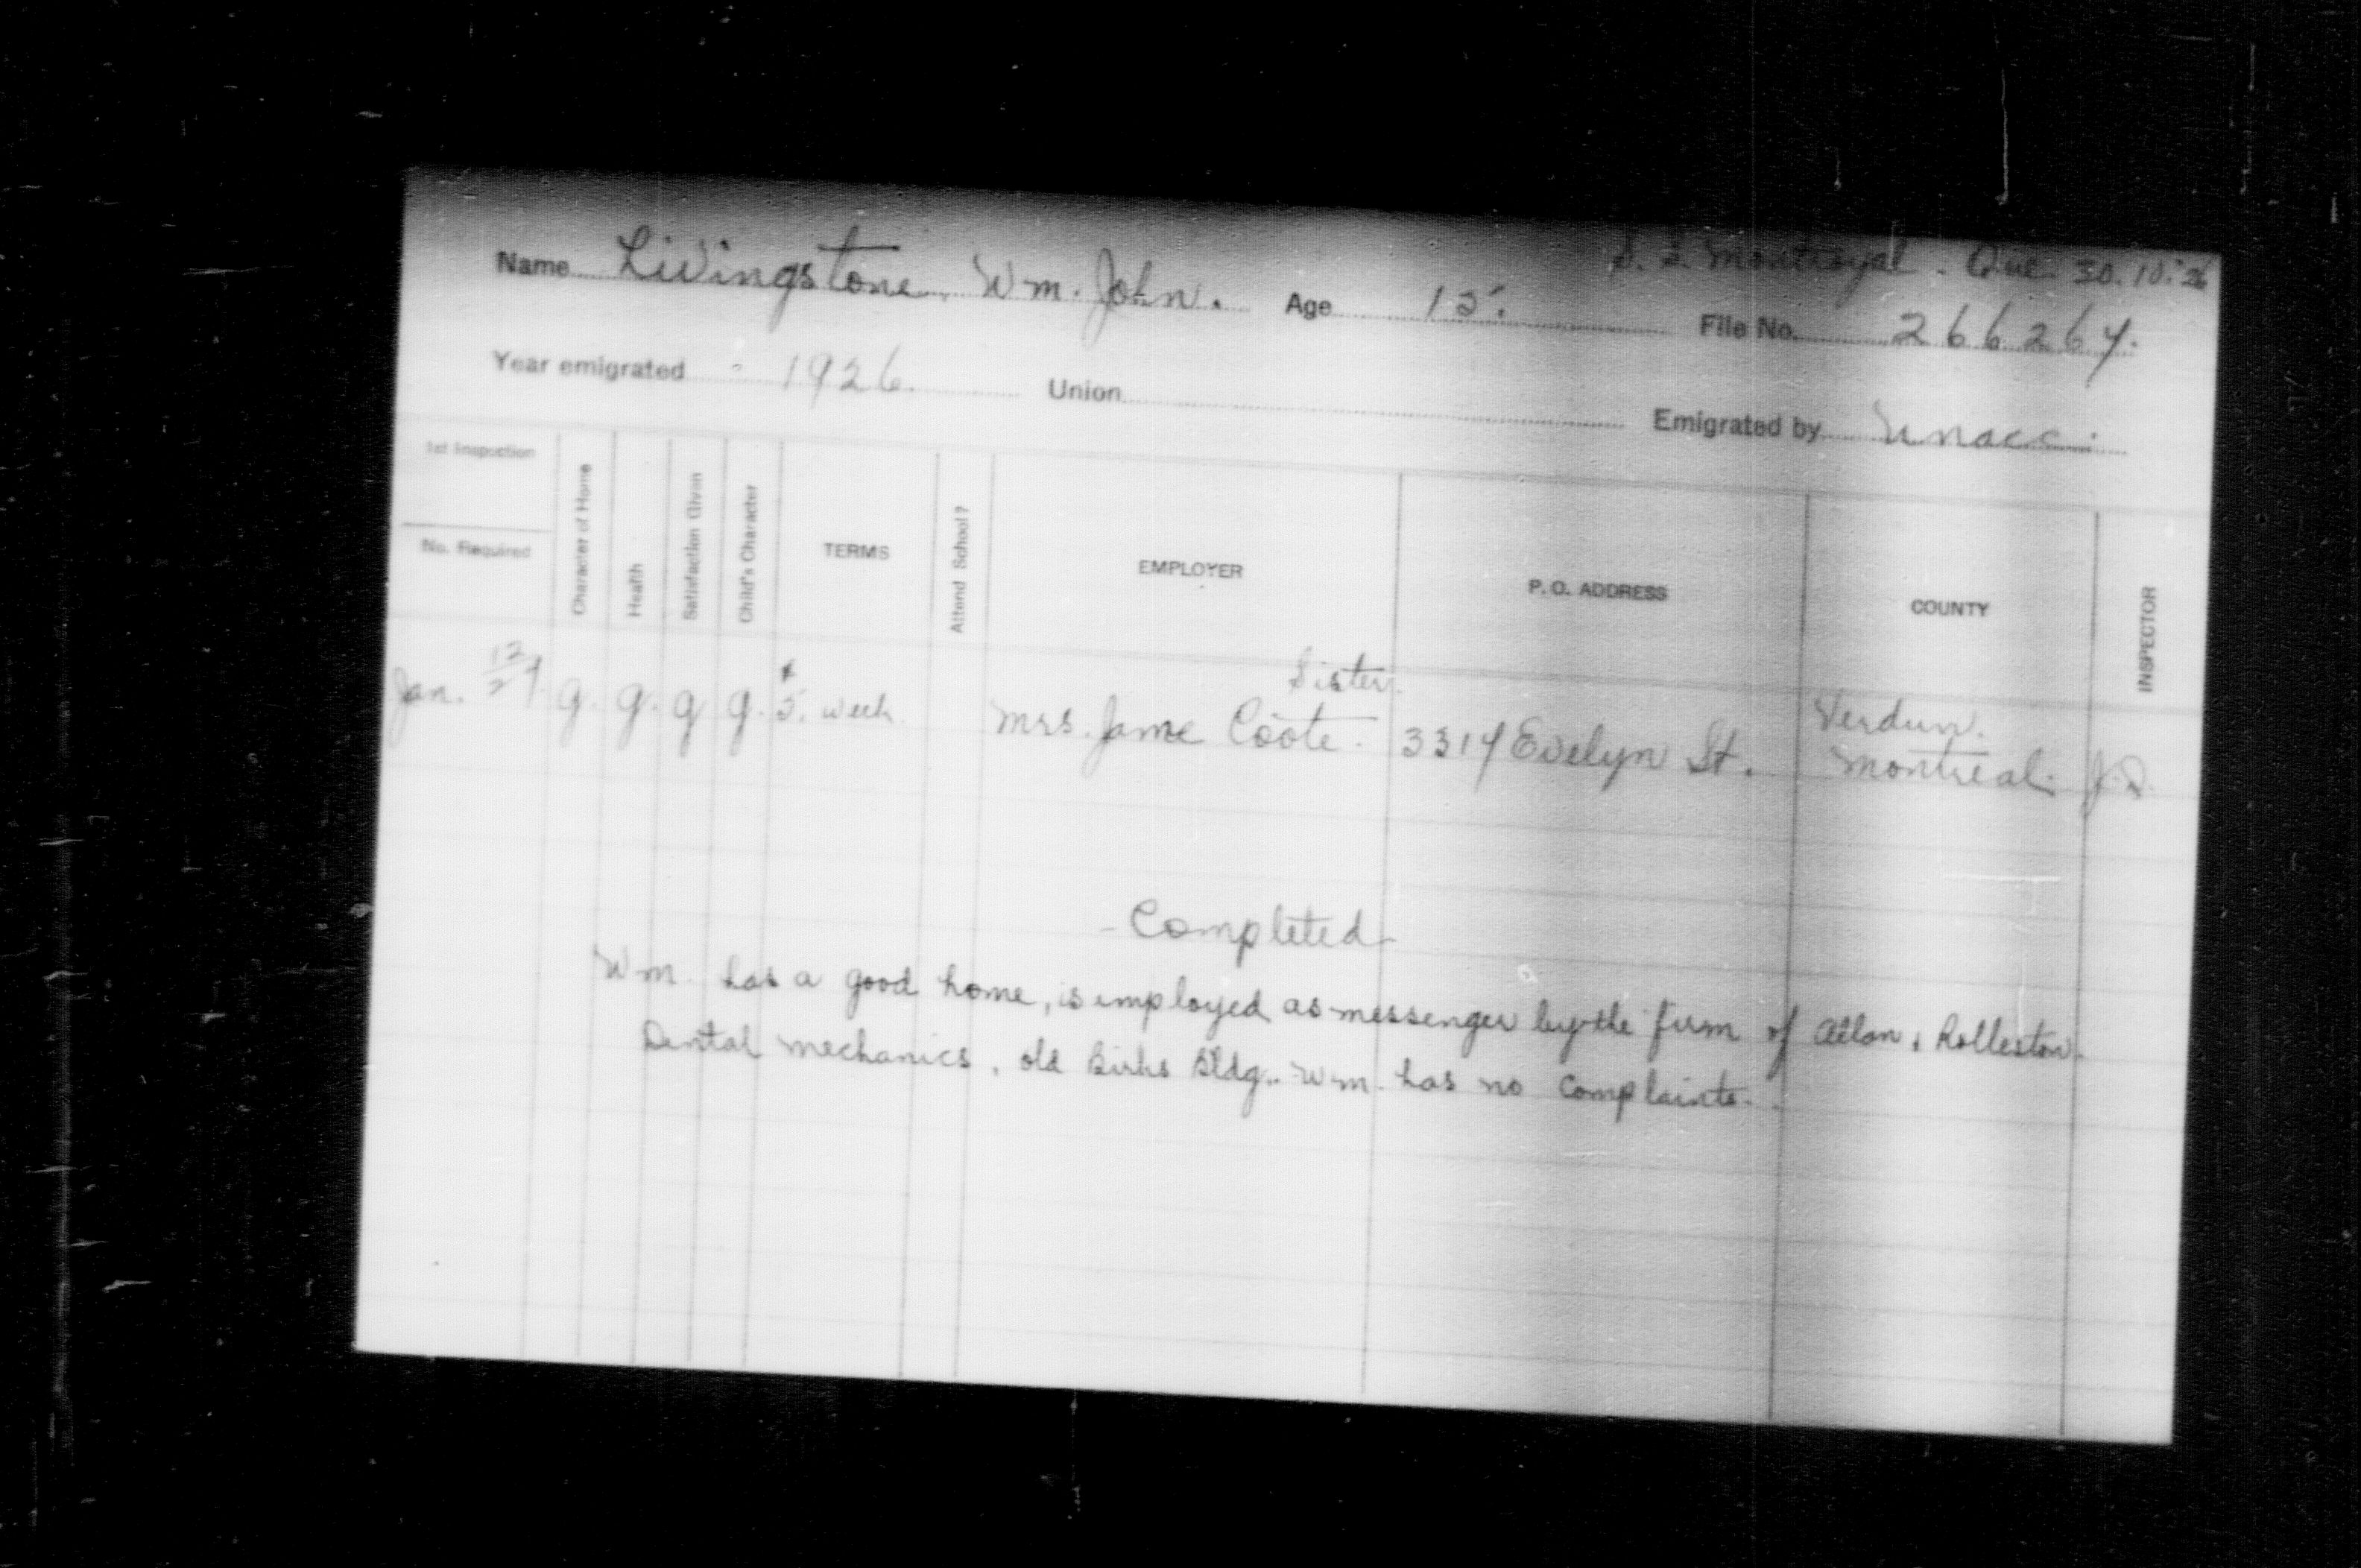 S. S. Montroyal. Que. 30.10.26
Name Livingstone, Wm. John. Age 15. File No. 266264.
Year emigrated - 1926. Union Emigrated by Unacc.
1st Inspection
No. Required
Character of Home
Health
Satisfaction Given
Child's Character
TERMS
Attend School?
EMPLOYER
P. O. ADDRESS
COUNTY
INSPECTOR
Sister.
Jan. 12/27. g. g. g g. $5. week. Mrs. Jame Coote. 3314 Evelyn St. Verdun.
Montreal. J.D.
- Completed -
Wm. has a good home, is employed as messenger by the firm of & Rolleston.
Dental Mechanics, old Birks Bldg.. Wm. has no complaints.